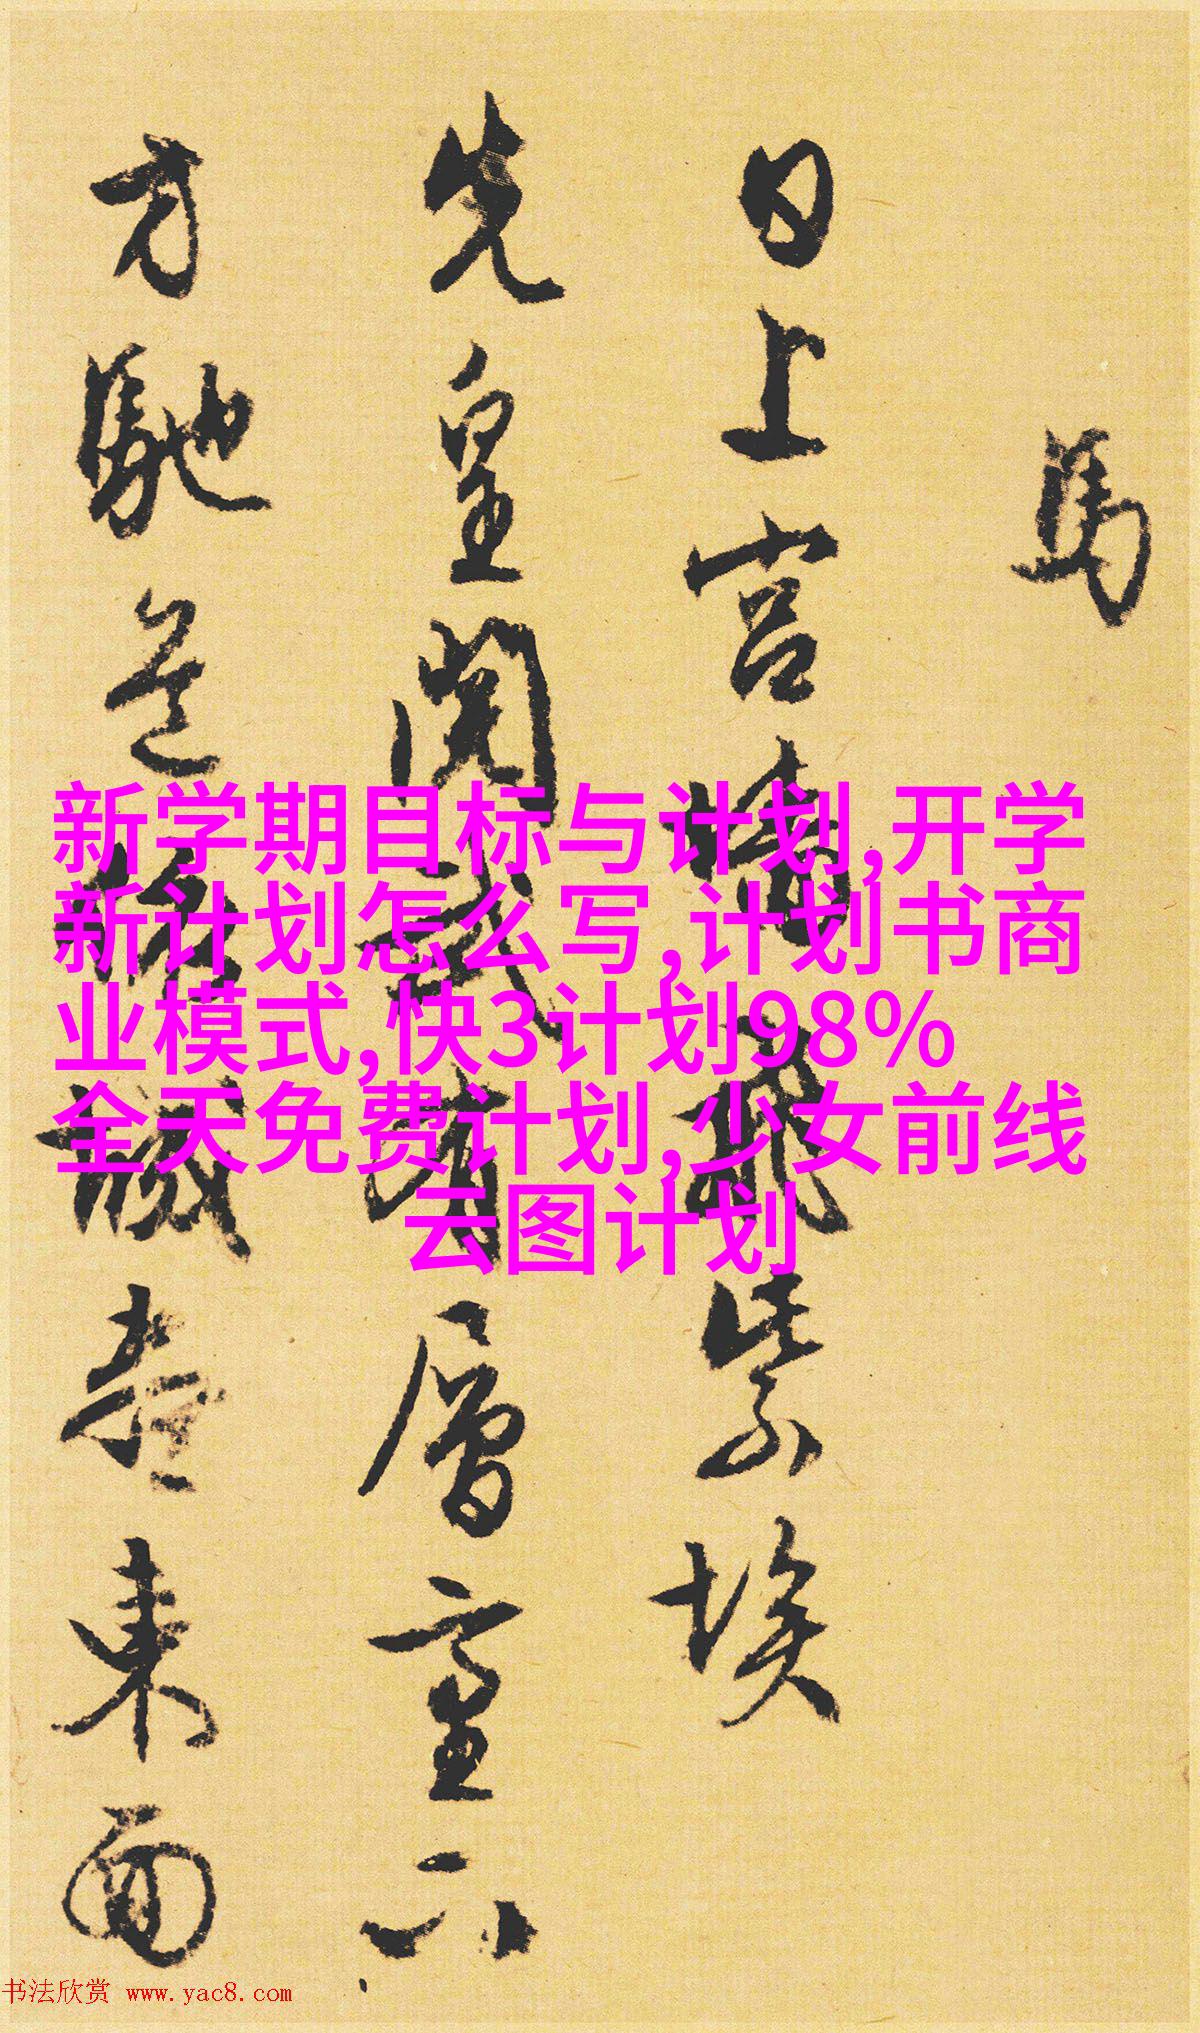 馬
日上宮墻飛紫埃
先皇閱武有層臺下
方馳道依城盡東面
新学期目标与计划,开学
新计划怎么写,计划书商
业模式,快3计划98%
全天免费计划,少女前线
云图计划
书法欣赏 www.yac8.com